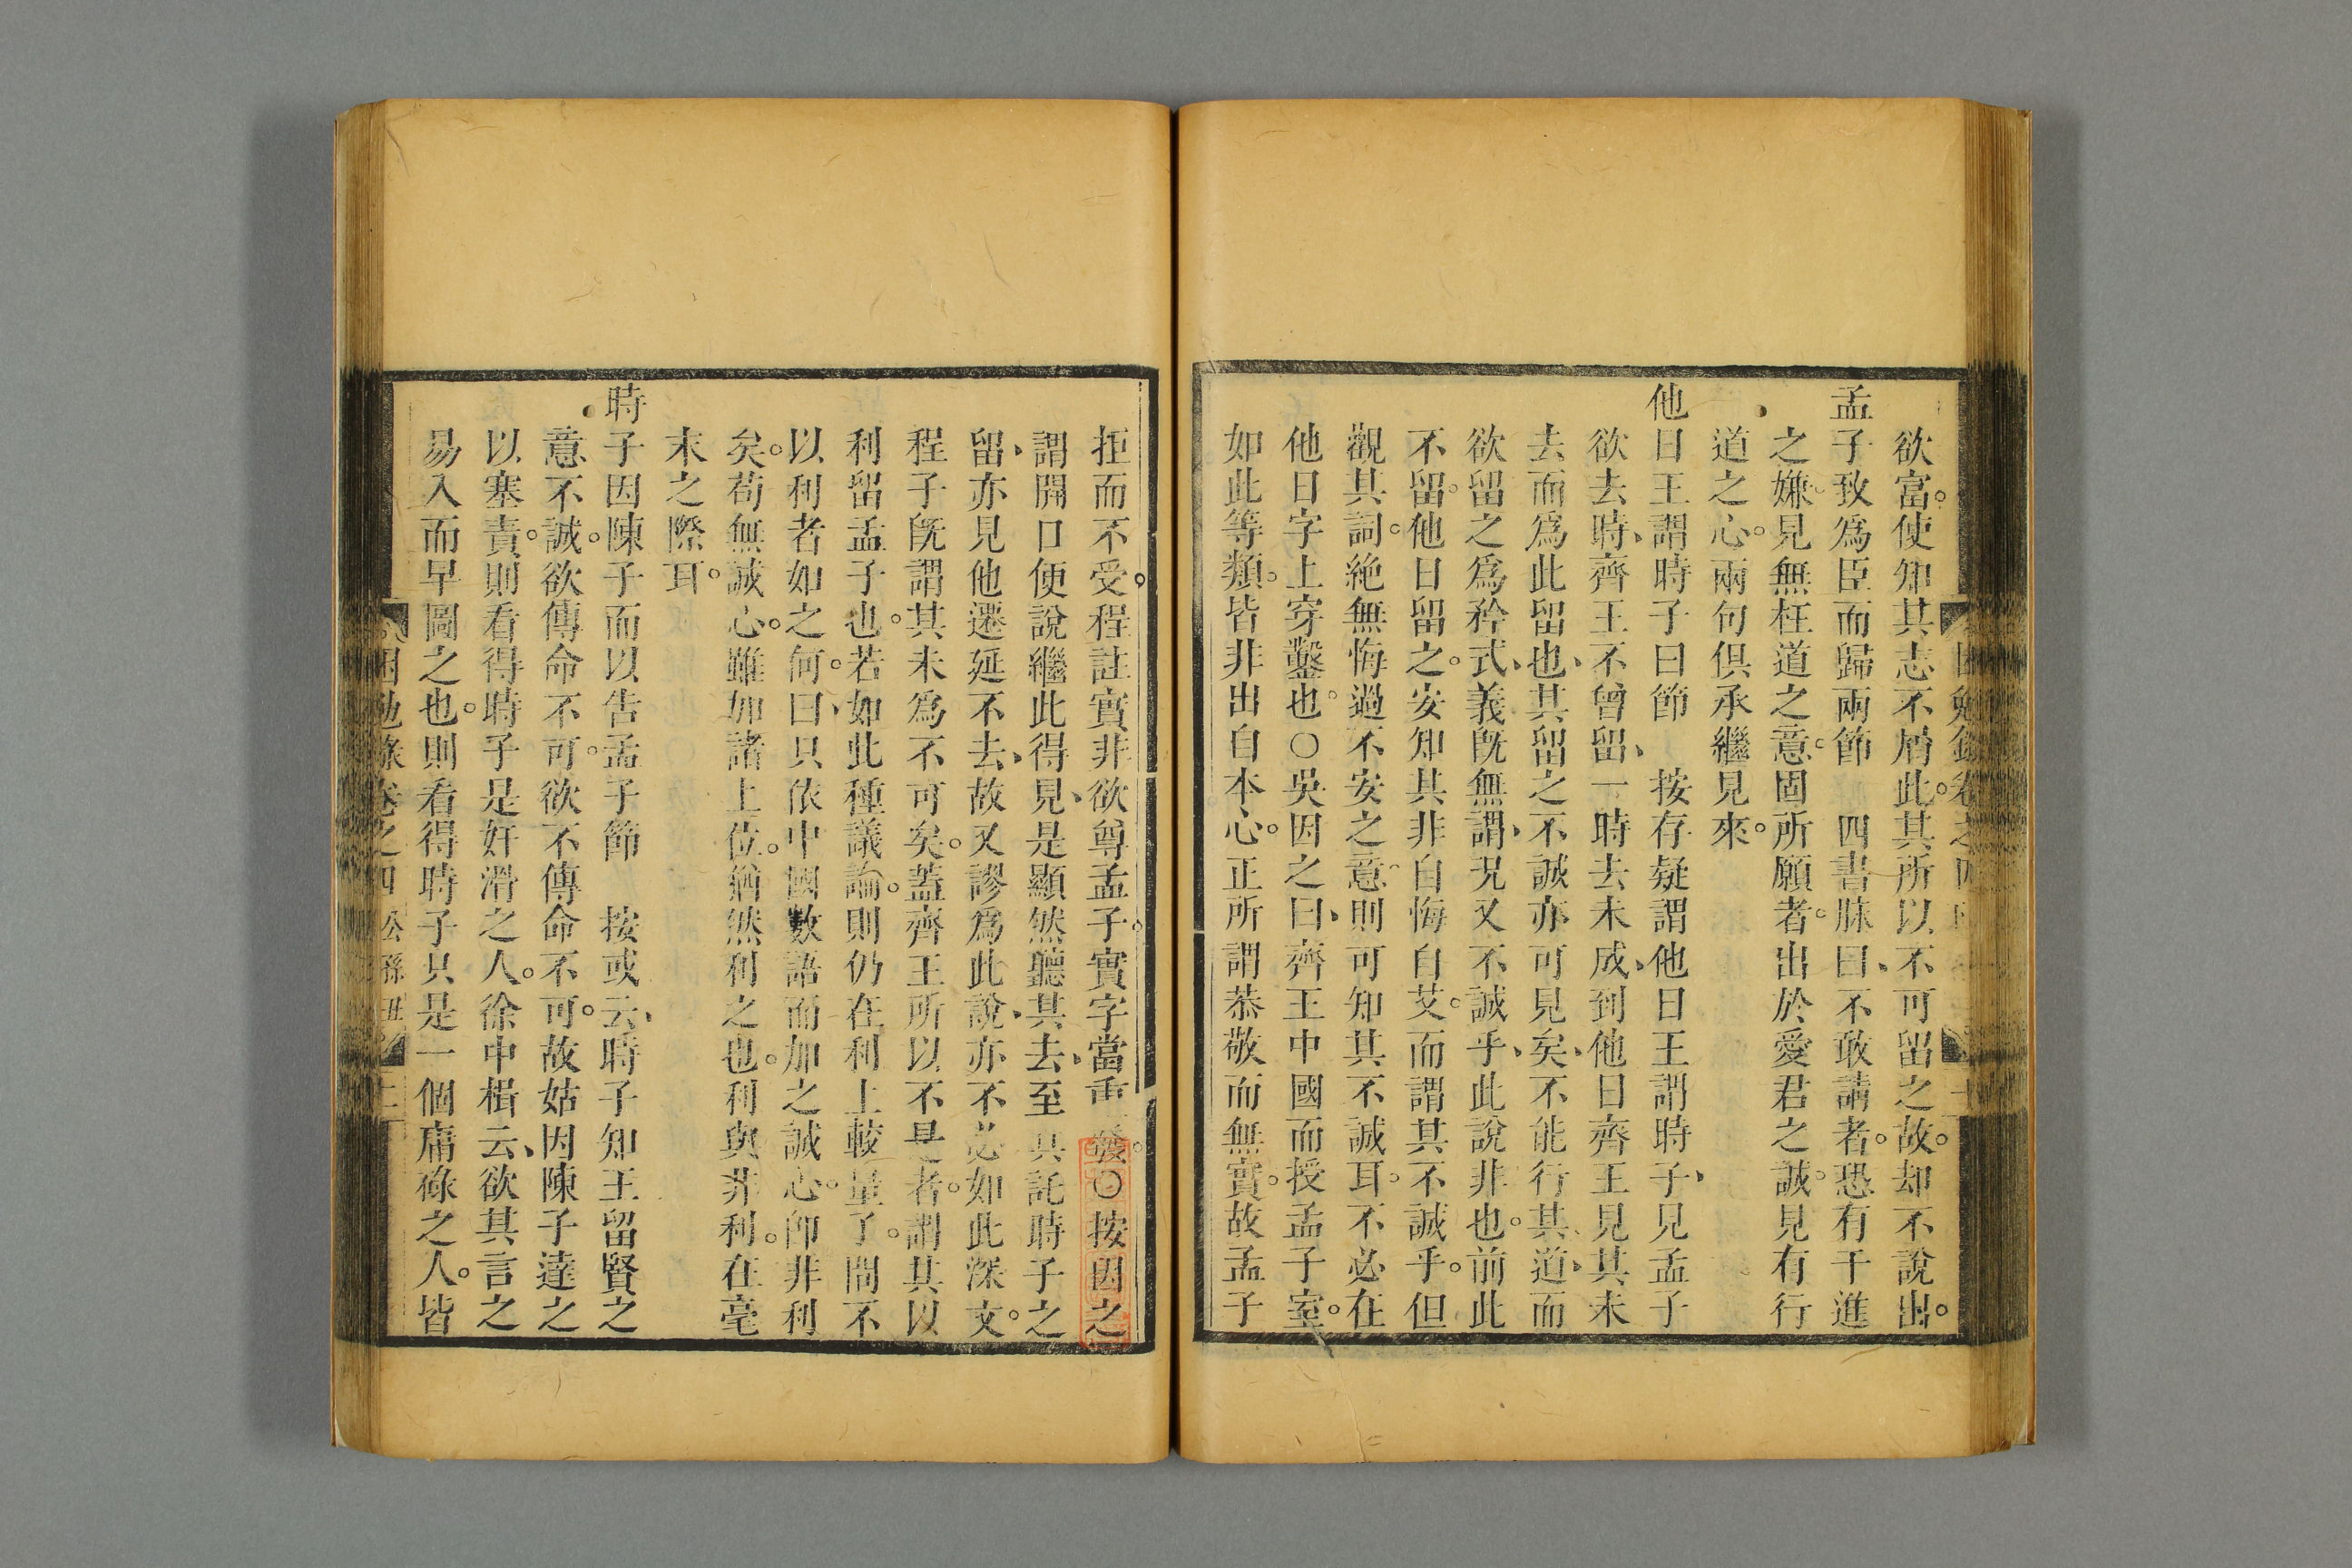 欲富。使知其志不屑此。其所以不可留之故。却不說出。
孟子致爲臣而歸兩節　四書脉曰、不敢請者。恐有干進
之嫌。見無枉道之意。固所願者。出於愛君之誠。見有行
道之心。兩句俱承繼見來。
他日王謂時子曰節　按存疑謂他日王謂時子、見孟子
欲去時、齊王不曾留、一時去未成、到他日齊王見其未
去而爲此留也、其留之不誠亦可見矣、不能行其道、而
欲留之爲矜式、義旣無謂、况又不誠乎、此說非也。前此
不留。他日留之。安知其非自悔自艾。而謂其不誠乎。但
觀其詞。絶無悔過不安之意。則可知其不誠耳。不必在
他日字上穿鑿也。○吳因之曰、齊王中國而授孟子室。
如此等類。皆非出自本心。正所謂恭敬而無實。故孟子
拒而不受。程註實非欲尊孟子。實字當重發。○按因之
謂開口便說繼此得見、是顯然聽其去、至其託時子之
留、亦見他遷延不去、故又謬爲此說、亦不必如此深文。
程子旣謂其未爲不可矣。葢齊王所以不是者。謂其以
利留孟子也。若如此種議論。則仍在利上較量了。問不
以利者如之何。曰、只依中國數語而加之誠心。卽非利
矣。苟無誠心。雖加諸上位。猶然利之也。利與非利。在毫
末之際耳。
時子因陳子而以告孟子節　按或云、時子知王留賢之
意不誠。欲傳命不可。欲不傳命不可。故姑因陳子達之
以塞責。則看得時子是奸滑之人。徐中楫云、欲其言之
易入而早圖之也。則看得時子只是一個庸碌之人。皆
困勉錄卷之四 公孫丑